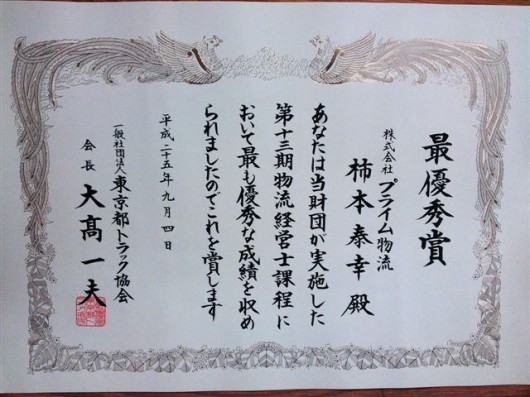 最優秀賞
株式会社 プライム物流
柿本泰幸 殿
あなたは当財団が実施した
第十三期物流経営士課程に
おいて最も優秀な成績を収め
られましたのでこれを賞します
平成二十五年九月四日
一般社団法人 東京都トラック協会
会長 大髙一夫